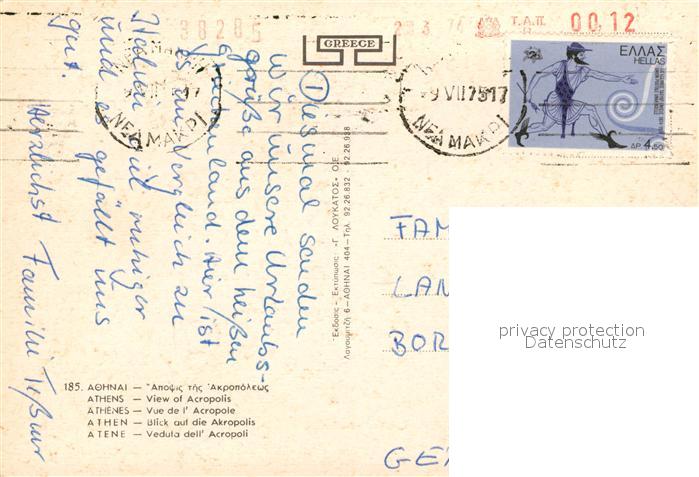 38285
Τ.Α.Π.
00.12
GREECE
ΕΛΛΑΣ
HELLAS
ΔΡ. 4.50
-9 VII 75 17
ΝΕΑ ΜΑΚΡΗ
ΝΕΑ ΜΑΚΡΗ
① Diesmal senden
wir unsere Urlaubs-
grüße aus dem heißen
Griechenland. Hier ist
es im Vergleich zu
viel ruhiger
und es gefällt uns
gut.
Herzlichst Familie
Ἔκδοσις - Ἐκτύπωσις: «Γ. ΛΟΥΚΑΤΟΣ» Ο.Ε.
6 - ΑΘΗΝΑΙ 404 - Τηλ. 92.26.832 - 92.26.988
FAM
LAN
BOR
GE
privacy protection
Datenschutz
185. ΑΘΗΝΑΙ — Ἄποψις τῆς Ἀκροπόλεως
ATHENS — View of Acropolis
ATHÈNES — Vue de l' Acropole
ATHEN — Blick auf die Akropolis
ATENE — Veduta dell' Acropoli